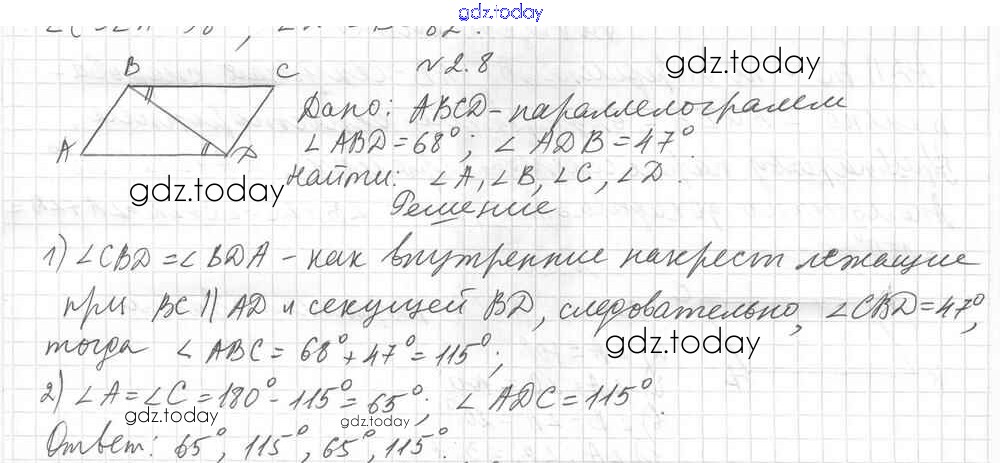 gdz.today
№ 2.8
gdz.today
B C
Дано: ABCD - параллелограмм
A D
∠ABD = 68°; ∠ADB = 47°
gdz.today
Найти: ∠A, ∠B, ∠C, ∠D.
Решение
1) ∠CBD = ∠BDA - как внутренние накрест лежащие
при BC || AD и секущей BD, следовательно, ∠CBD = 47°,
тогда ∠ABC = 68° + 47° = 115°;
gdz.today
2) ∠A = ∠C = 180° - 115° = 65°; ∠ADC = 115°.
gdz.today
gdz.today
Ответ: 65°, 115°, 65°, 115°.